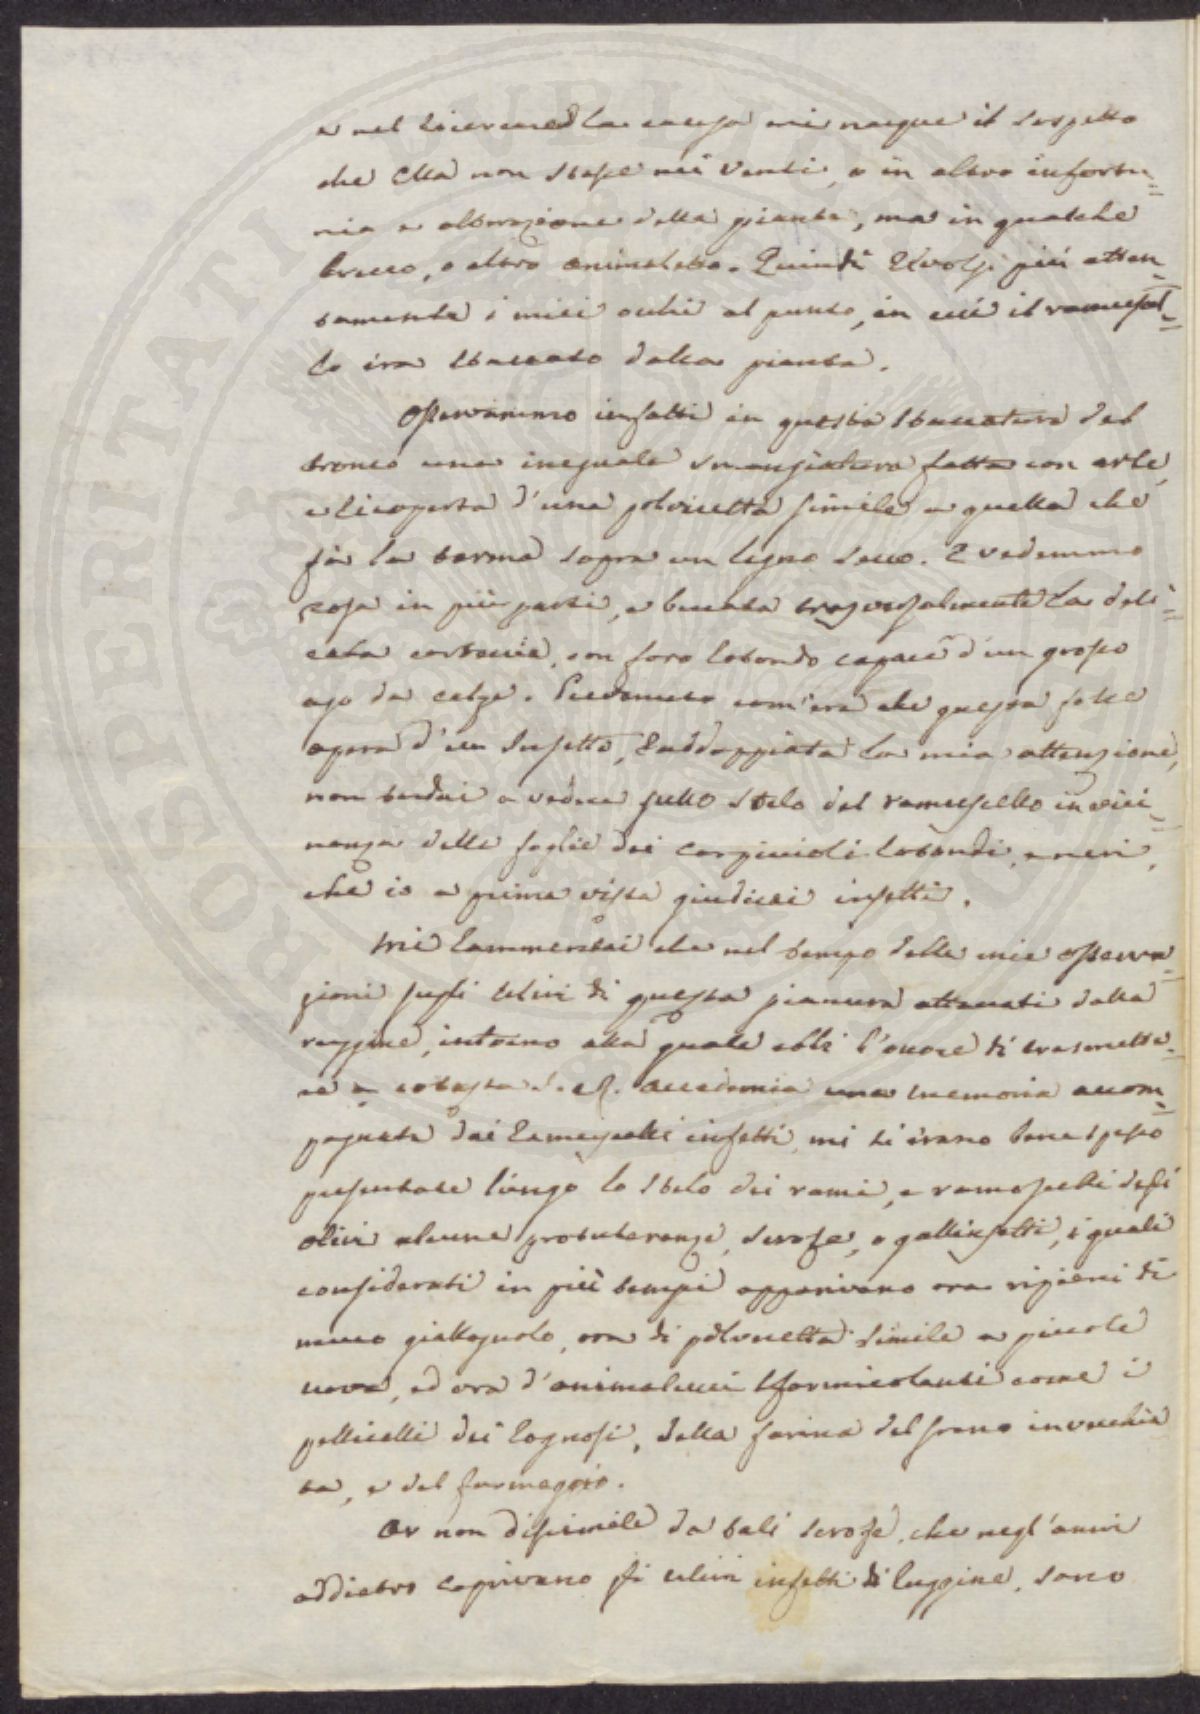 PROSPERITATI PUBLICAE
e nel ricercare la causa mi nacque il sospetto
che Ella non stasse nei venti, o in altro infortu=
nio e alterazione della pianta, ma in qualche
bruco, o altro animaletto. Quindi rivolsi più atten=
tamente i miei occhi al punto, in cui il ramuscel=
lo era staccato dalla pianta.
Osservammo infatti in questa staccatura del
tronco una ineguale smangiatura fatta con arte,
e ricoperta d'una polvicetta simile a quella che
fà la tarma sopra un legno secco. E vedemmo
rosa in più parti, e bucata trasversalmente la deli=
cata corteccia, con foro rotondo capace d'un grosso
ago da calze. Prevenuto com'era che questa fosse
opera d'un Insetto, raddoppiata la mia attenzione,
non tardai a vedere sullo stelo del ramuscello in vici=
nanza delle foglie dei corpiccioli rotondi, e neri,
che io a prima vista giudicai insetti.
Mi rammentai che nel tempo delle mie osserva=
zioni sugli ulivi di questa pianura attaccati dalla
ruggine, intorno alla quale ebbi l'onore di trasmette=
re a cotesta I. e R. Accademia una memoria accom=
pagnata dai ramuscelli infetti, mi si erano bene spesso
presentate lungo lo stelo dei rami, e ramoscelli degli
olivi alcune protuberanze, scrofe, o gallinsetti, i quali
considerati in più tempi apparivano ora ripieni di
muco giallognolo, ora di polvicetta simile a piccole
uova, ed ora d'animalucci sformicolanti come i
pellicelli dei rognosi, della farina del grano invecchia
ta, e del formaggio.
Or non dissimile da tali scrofe, che negl'anni
addietro coprivano gli ulivi infetti di ruggine, sono